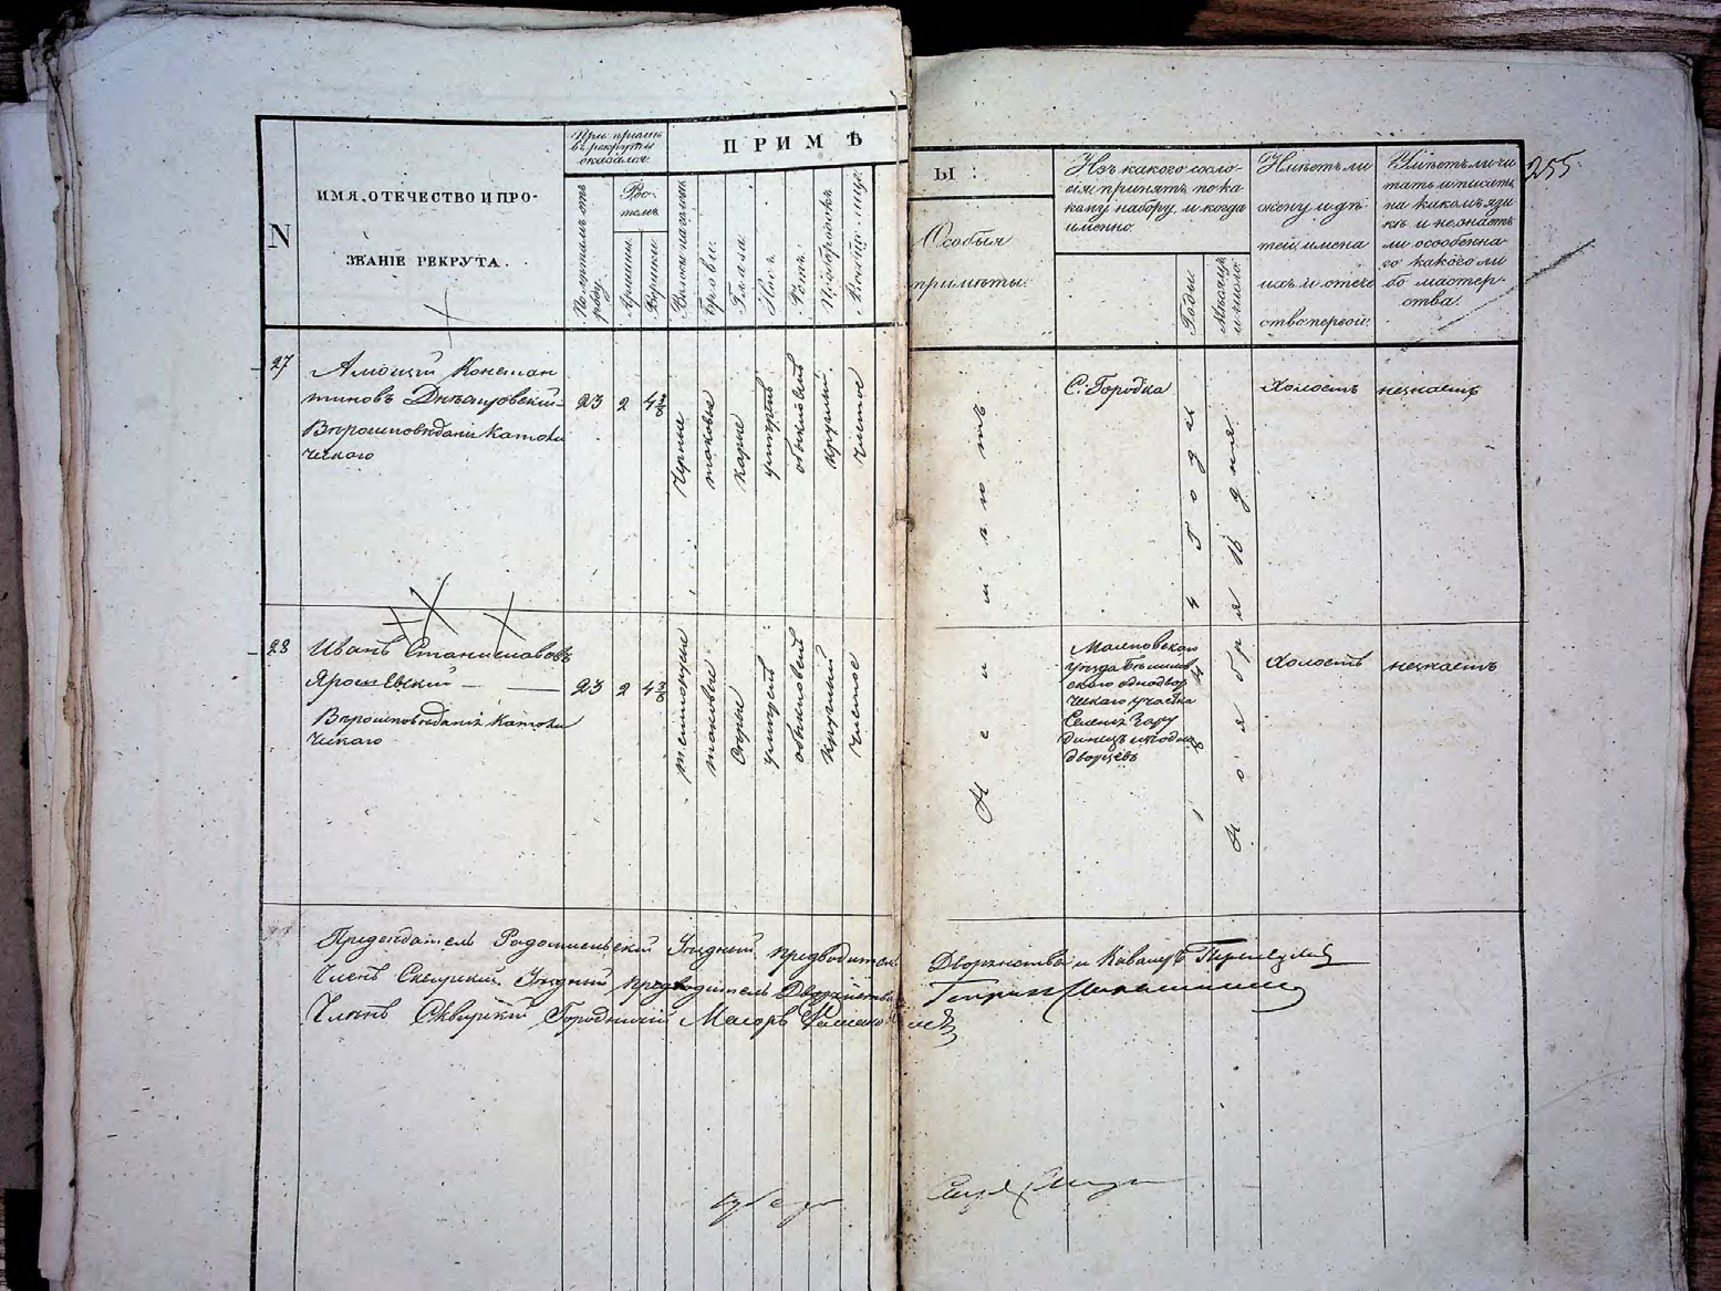 255
N
ИМЯ, ОТЕЧЕСТВО И ПРО-
ЗВАНІЕ РЕКРУТА.
При пріемѣ
въ рекруты
оказался:
По лѣтамъ отъ
роду.
Ро-
стомъ
Аршины.
Вершки.
ПРИМѢ
Волосы на головѣ
Брови.
Глаза.
Носъ.
Ротъ.
Подбородокъ
Вообще лице.
Ы:
Особыя
примѣты.
Изъ какого сосло-
вія принятъ, по ка-
кому набору, и когда
именно.
Годы.
Мѣсяцъ
и число.
Имѣетъ ли
жену и дѣ-
тей, имена
ихъ и отече
ство первой.
Умѣетъ ли чи
тать и писать
на какомъ язы
кѣ и не знаетъ
ли особенна-
го какого ли
бо мастер-
ства.
27
Константиновъ
Вѣроисповѣданія Католи
ческаго
23
2
4
Черные
таковые
карие
умѣренъ
обыкновенъ
круглый
чистое
С. Городка
Холостъ
незнаетъ
28
Иванъ Станиславовъ
Ярошевскій
Вѣроисповѣданія Католи
ческаго
23
2
4
таковые
Серые
умѣренъ
обыкновенъ
круглый
чистое
Неимѣютъ
уезда
скаго однодвор
ческаго участка
Селенія
дворцевъ
184 4 Года
Ноября 16 дня
Холостъ
незнаетъ
Предсѣдатель Радомысльскій Уѣздный предводитель Дворянства и Кавалеръ
Членъ Сквирскій Уѣздный предводитель Дворянства
Членъ Сквирскій Городничій Маіоръ